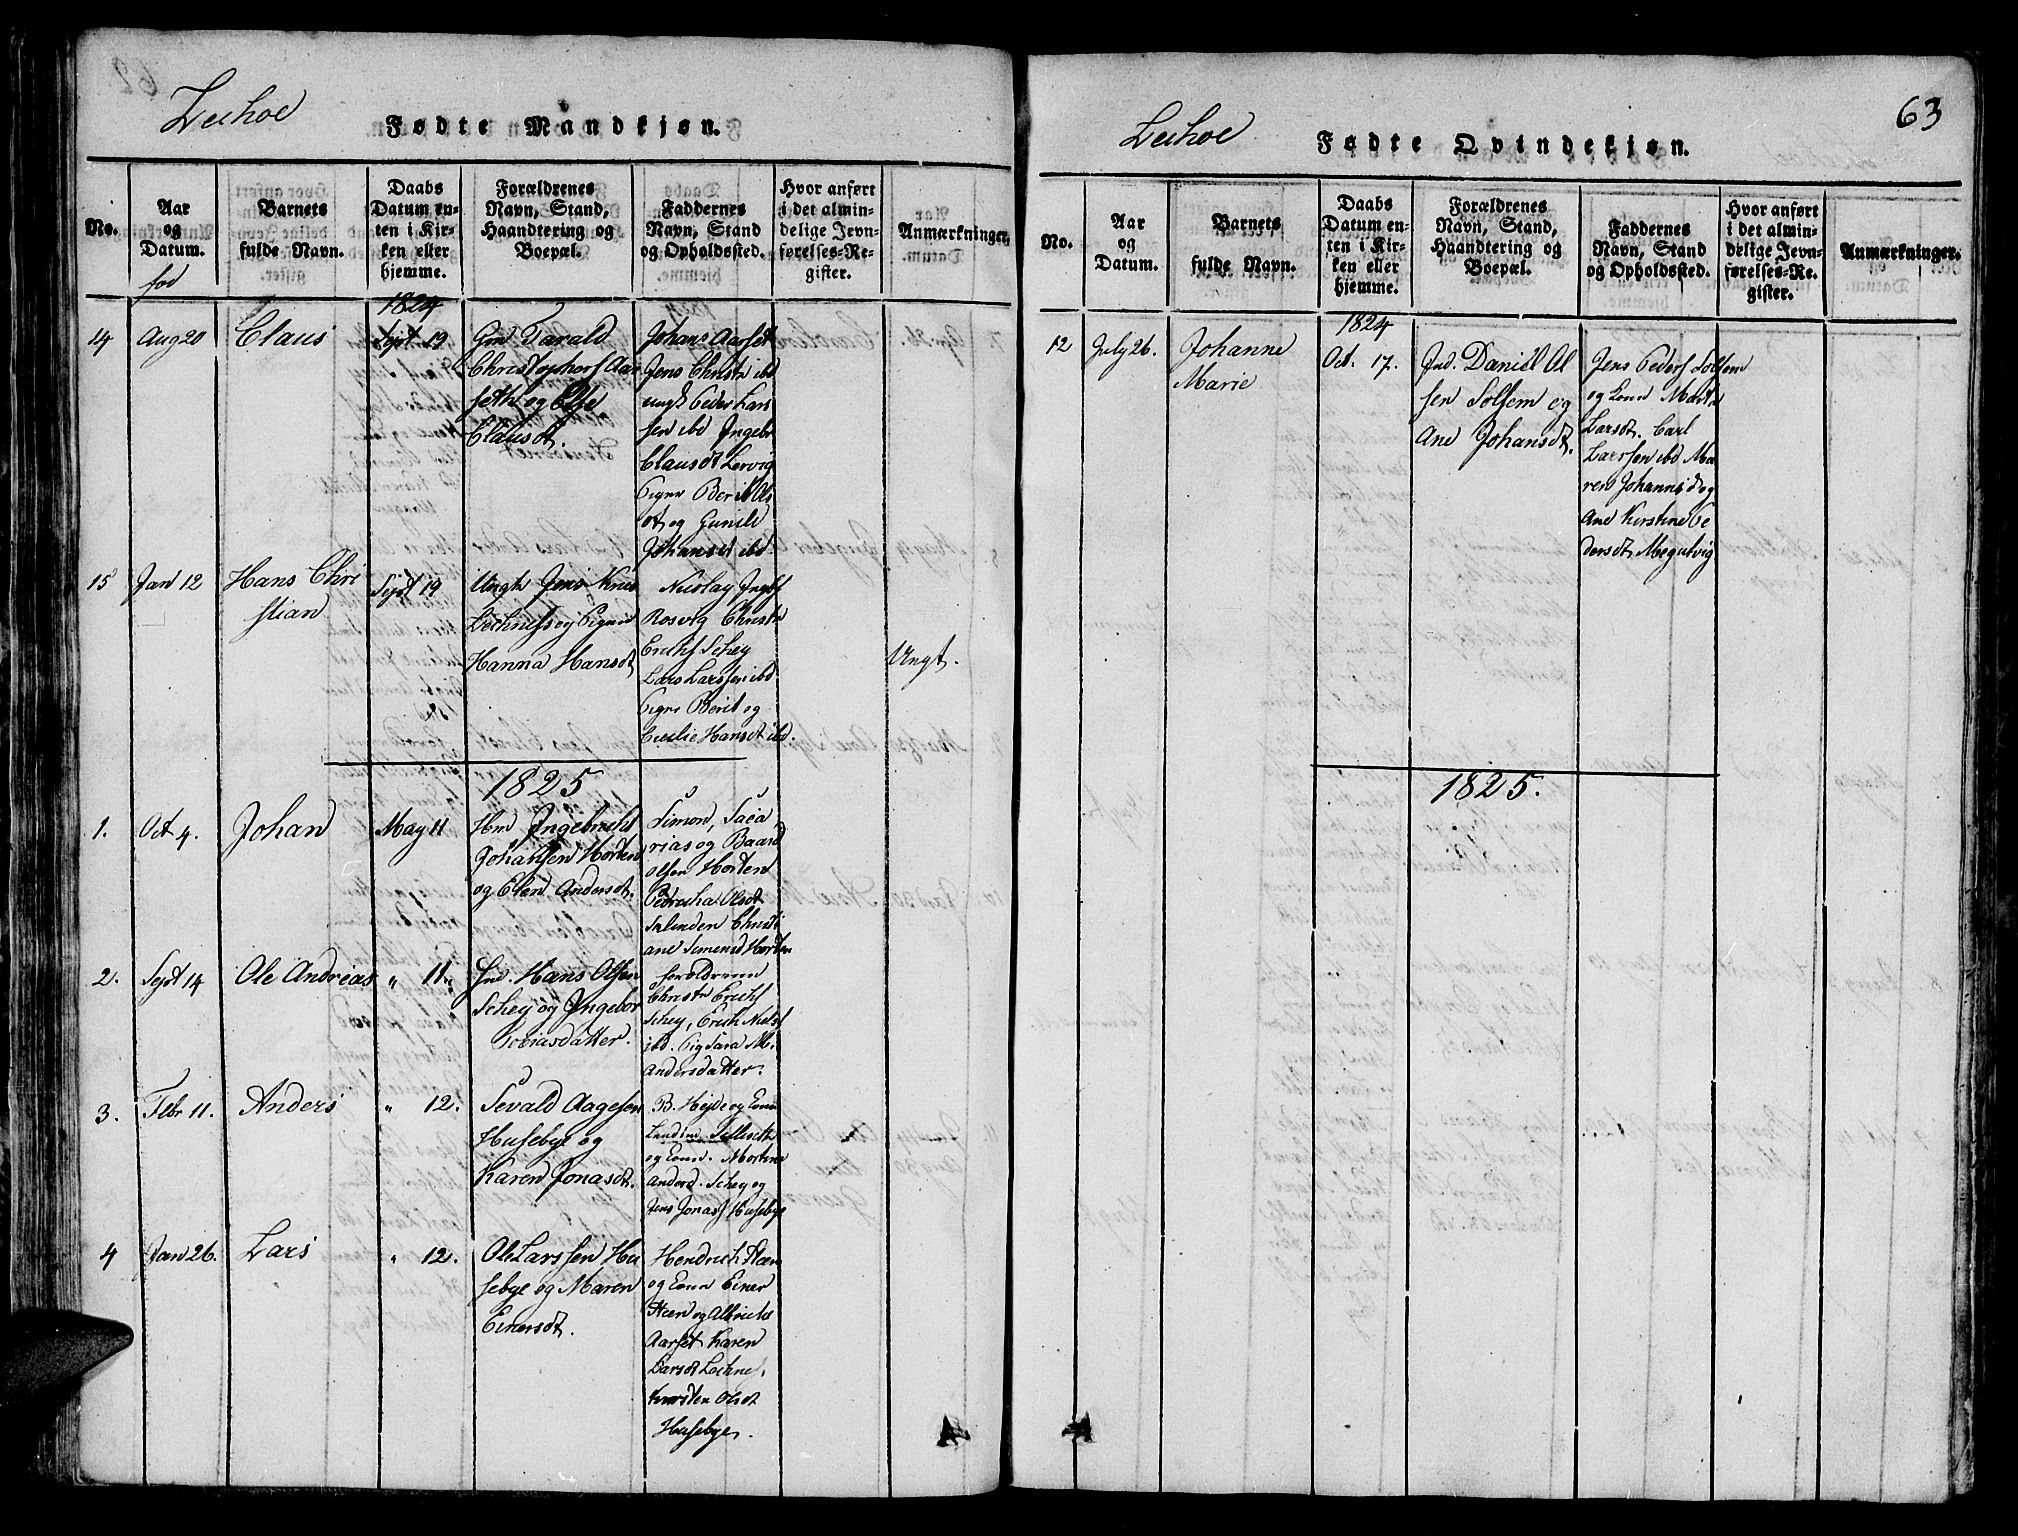 Leehoe
Fødte Mandkjøn.
No.
Aar
og
Datum.
fød
Barnets
fulde Navn.
Daabs
Datum en-
ten i Kir-
ken eller
hjemme.
Forældrenes
Navn, Stand,
Haandtering og
Boepæl.
Faddernes
Navn, Stand
og Opholdssted.
Hvor anført
i det almin-
delige Jevn-
førelses-Re-
gister.
Anmærkninger.
1824
14
Aug 20
Claus
Sept 19
Gm Tarald
Christophers Aar
seth og Else
Clausdt.
Johans Aarset
Jens Christn ibd
ungk Peder Lars
sen ibd Ingebr
Clausdt Lervig
Pigne Berit Ols
dt og Gunild
Johansdt ibd.
15
Jan 12
Hans Chri
stian
Sept 19
Ungk Jens
og Pigen
Hanna Hansdt
Nicolay
Rosvig Christn
Erichs Schey
Lars Larssen ibd
Pigne Berit og
Hansdt ibd.
Ungt.
1825
1.
Oct 4.
Johan
May 11
Hmd Ingebricht
Johansen Horten
og Elen Andersdt.
Simon, Saca
rias og Baard
olsen Horten
Olsdt
Christi
ane Simensd Horten
2.
Sept 14
Ole Andreas
" 11.
Hans Olsen
Schey og Ingebor
Tobiasdatter.
foreldrene
Christn Erichs
Schey, Erich Niels
ibd. Pig Sara M.
Andersdatter.
3.
Febr 11.
Anders
" 12.
Sevald Aagesen
Husebye og
Karen Jonasdt.
B. Hejde og Konn
og Konn. Mortine
Andersd. Schey og
Jens Jonass Husebye
4
Jan 26.
Lars
" 12.
Ole Larssen Hu
sebye og Maren
Einersdt.
Hendrich Steen
og Konn Einer
Steen og
Aarset Karen
Larsdt
Olsdt
Husebye.
63
Leehoe
Fødte Qvindekjøn.
No.
Aar
og
Datum.
Barnets
fulde Navn.
Daabs
Datum en-
ten i Kir-
ken eller
hjemme.
Forældrenes
Navn, Stand,
Haandtering og
Boepæl.
Faddernes
Navn, Stand
og Opholdssted.
Hvor anført
i det almin-
delige Jevn-
førelses-Re-
gister.
Anmærkninger.
1824
12
July 26.
Johanne
Marie
Oct. 17.
Ind. Daniel Ol
sen Solsem og
Ane Johansdt.
Jens Peders Solsem
og Konn Martn
Larsdt. Carl
Larssen ibd Ma
ren Johannisd og
Ane Kirstine Pe
dersdt Megutvig
1825.